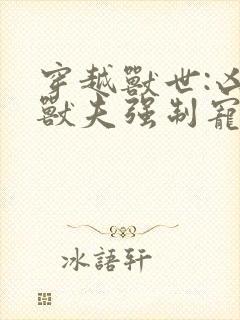 穿越獸世:凶
獸夫强制寵
冰語軒